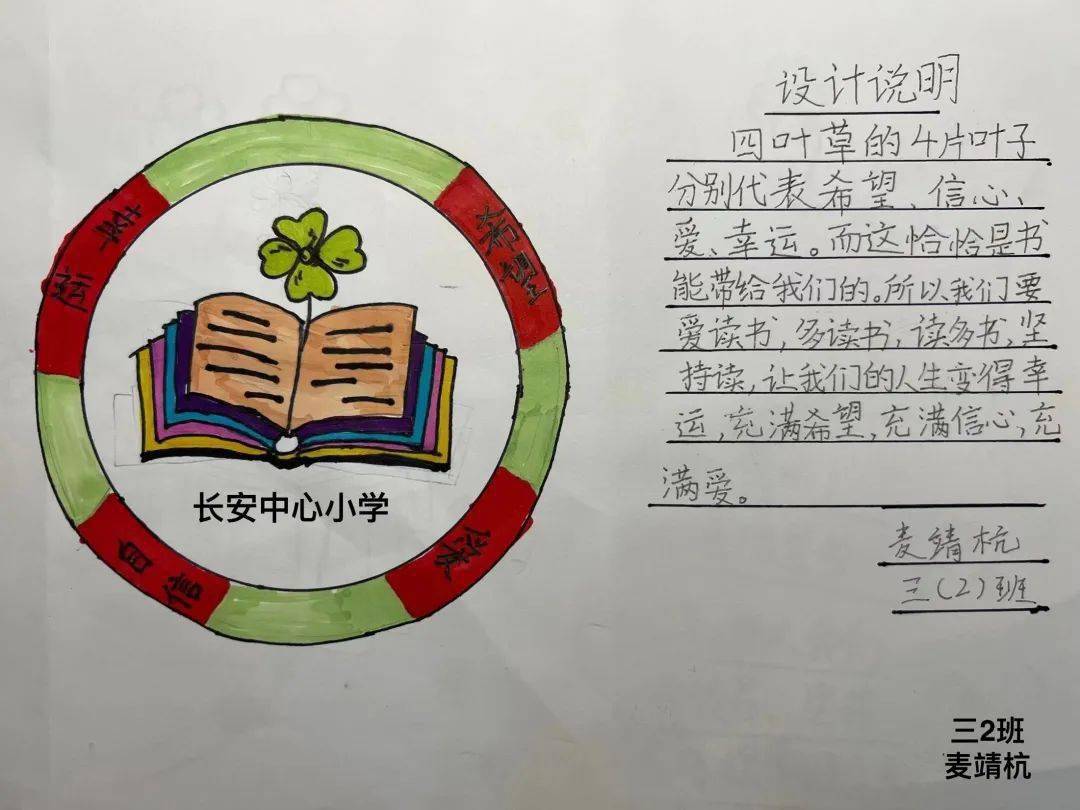 幸运
希望
自信
爱
长安中心小学
设计说明
四叶草的4片叶子
分别代表希望、信心、
爱、幸运。而这恰恰是书
能带给我们的。所以我们要
爱读书，多读书，读多书，坚
持读，让我们的人生变得幸
运，充满希望，充满信心，充
满爱。
麦靖杭
三（2）班
三2班
麦靖杭